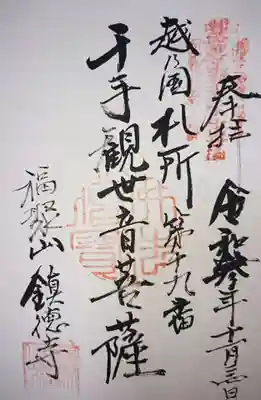 奉拝
令和参年十一月三日
越乃国札所 第十九番
千手観世音菩薩
福聚山 鎮徳寺